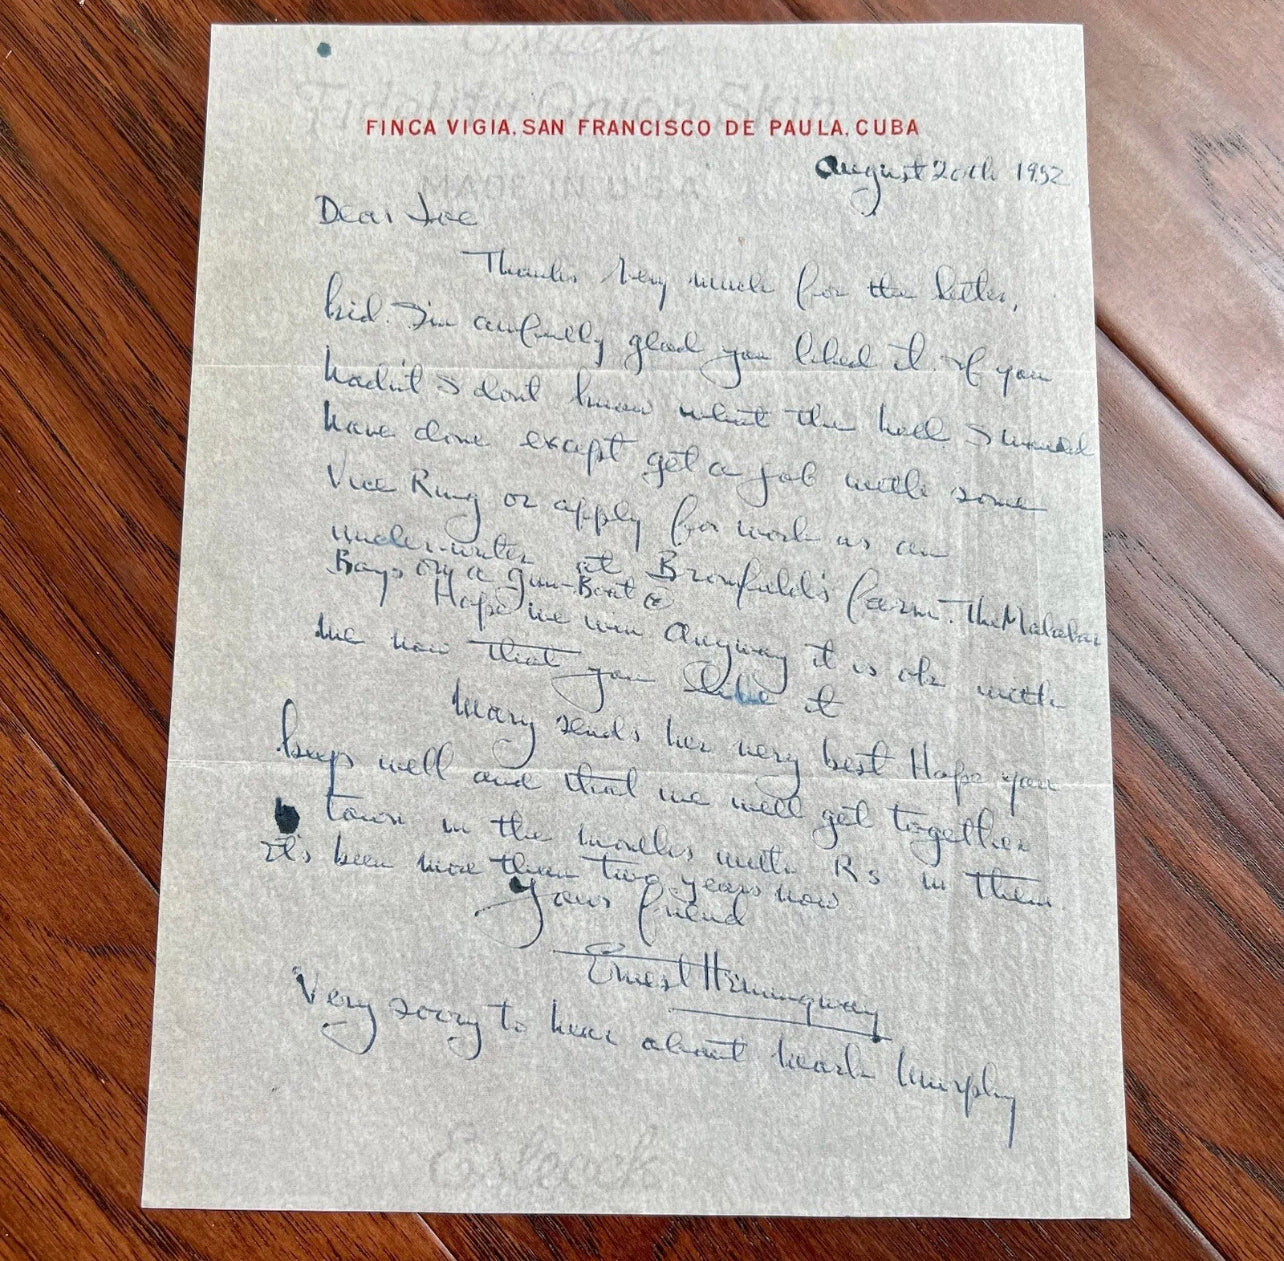 Esleeck
Fidelity Onion Skin
FINCA VIGIA, SAN FRANCISCO DE PAULA, CUBA
MADE IN U.S.A.
August 20th 1952
Dear Joe
Thanks very much for the letter,
kid. I'm awfully glad you liked it. If you
hadn't I dont know what the hell I would
have done except get a job with some
Vice Ring or apply for work as an
under-writer at Bromfield's farm. The Malabar
Boys on a gun-Boat
Hope we win Anyway it is ok with
me now that you like it
Mary sends her very best Hope you
keep well and that we will get together
town in the months with Rs in them.
it's been more then two years now
Your friend
Ernest Hemingway
Very sorry to hear about Mark Murphy
Esleeck